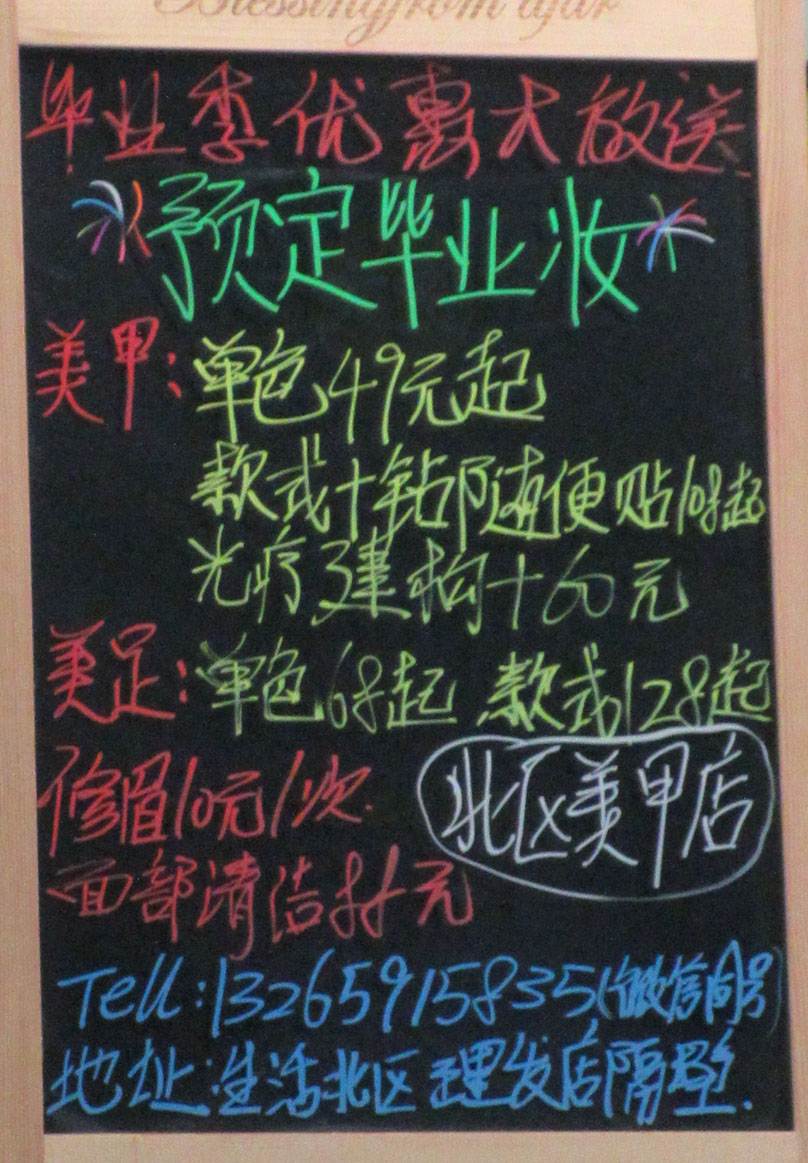 Blessing from afar
毕业季优惠大放送
预定毕业妆
美甲:单色49元起
款式+钻随便贴108起
光疗建构+60元
美足:单色68起 款式128起
修眉10元/次
北区美甲店
面部清洁 元
Tell:13265915835(微信同号)
地址:生活北区理发店隔壁.